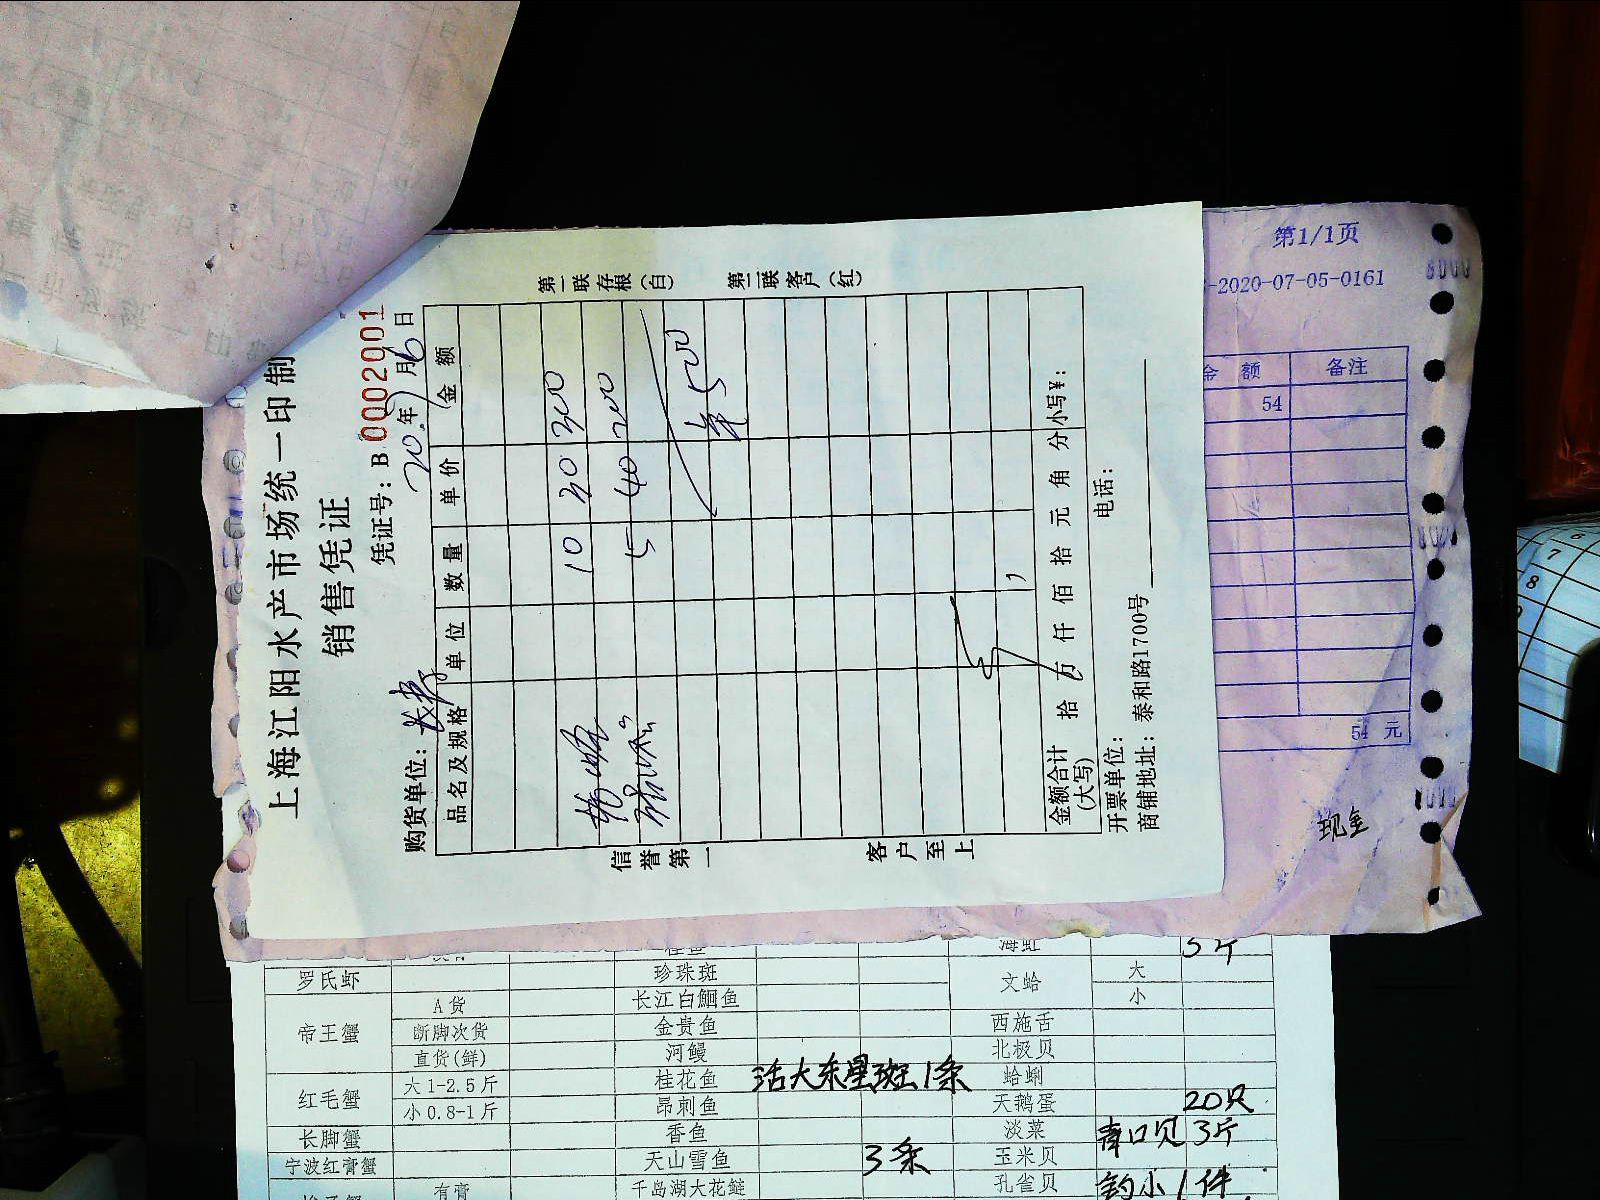 上海江阳水产市场统一印制
销售凭证
凭证号：B 0002001
购货单位：
20 年 7 月 6 日
品名及规格 单位 数量 单价 金额
10 30 300
5 40 200
500
金额合计(大写) 拾 万 仟 佰 拾 元 角 分 小写¥：
开票单位： 电话：
商铺地址：泰和路1700号
第一联存根（白） 第二联客户（红）
信誉第一 客户至上
第1/1页
-2020-07-05-0161
额 备注
54
54 元
现金
海虹 5斤
罗氏虾 珍珠斑 文蛤 大
A货 长江白鮰鱼 小
帝王蟹 断脚次货 金贵鱼 西施舌
直货(鲜) 河鳗 北极贝
红毛蟹 大1-2.5斤 桂花鱼 活大东星斑1条 蛤蜊
小0.8-1斤 昂刺鱼 天鹅蛋 20只
长脚蟹 香鱼 淡菜 青口贝3斤
宁波红膏蟹 天山雪鱼 3条 玉米贝
有膏 千岛湖大花鲢 孔雀贝 小1件